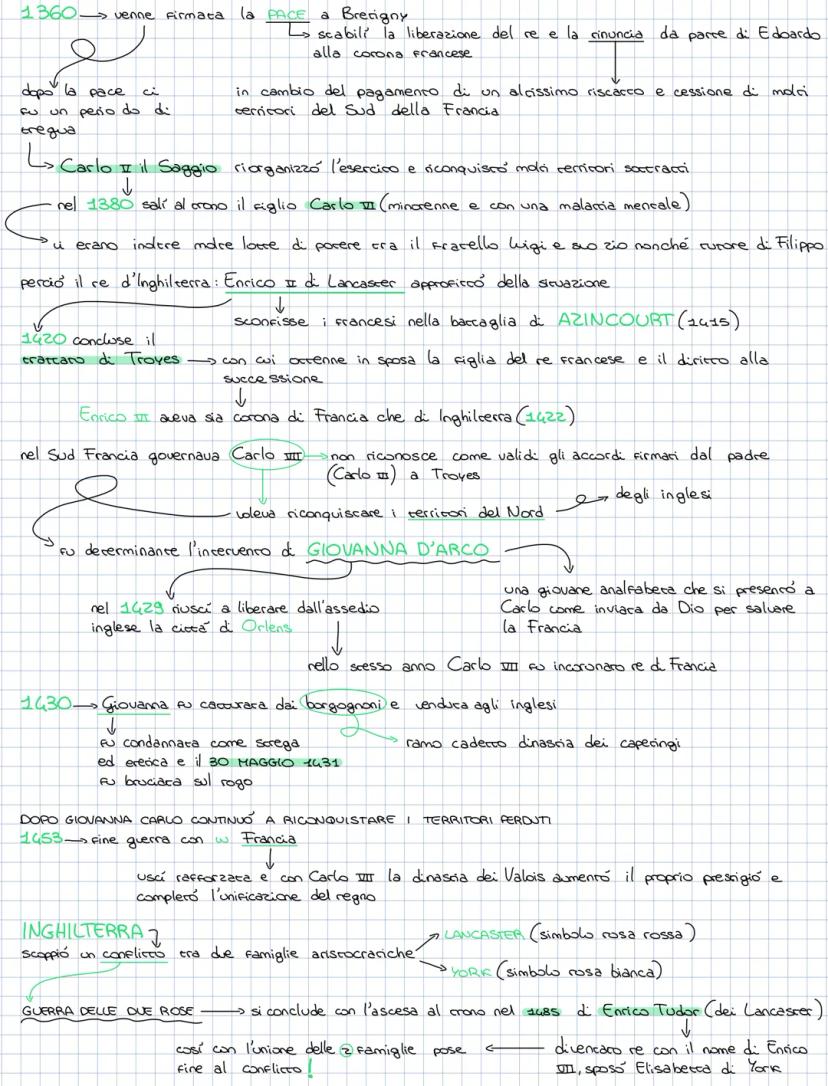 1360 → venne firmata la PACE a Bretigny
→ stabilì la liberazione del re e la rinuncia da parte di Edoardo
alla corona francese
dopo la pace ci
fu un periodo di
tregua
in cambio del pagamento di un altissimo riscatto e cessione di molti
territori del Sud della Francia
→ Carlo V il Saggio riorganizzó l'esercito e riconquistó molti territori sottratti
nel 1380 salí al trono il figlio Carlo VI (minorenne e con una malattia mentale)
→ vi erano inoltre molte lotte di potere tra il fratello Luigi e suo zio nonché tutore di Filippo
perció il re d'Inghilterra: Enrico V di Lancaster approfittó della situazione
sconfisse i francesi nella battaglia di AZINCOURT (1415)
1420 concluse il
trattato di Troyes → con cui ottenne in sposa la figlia del re francese e il diritto alla
successione
Enrico VI aveva sia corona di Francia che di Inghilterra (1422)
nel Sud Francia governava Carlo VII → non riconosce come validi gli accordi firmati dal padre
(Carlo VI) a Troyes
voleva riconquistare i territori del Nord → degli inglesi
fu determinante l'intervento di GIOVANNA D'ARCO
una giovane analfabeta che si presentó a
Carlo come inviata da Dio per salvare
la Francia
nel 1429 riuscí a liberare dall'assedio
inglese la cittá di Orlens
nello stesso anno Carlo VII fu incoronato re di Francia
1430 → Giovanna fu catturata dai borgognoni e venduta agli inglesi
→ ramo cadetto dinastia dei capetingi
fu condannata come strega
ed eretica e il 30 MAGGIO 1431
fu bruciata sul rogo
DOPO GIOVANNA CARLO CONTINUÓ A RICONQUISTARE I TERRITORI PERDUTI
1453 → fine guerra con W Francia
uscí rafforzata e con Carlo VII la dinastia dei Valois aumentó il proprio prestigió e
completó l'unificazione del regno
INGHILTERRA
scoppió un conflitto tra due famiglie aristocratiche
→ LANCASTER (simbolo rosa rossa)
→ YORK (simbolo rosa bianca)
GUERRA DELLE DUE ROSE → si conclude con l'ascesa al trono nel 1485 di Enrico Tudor (dei Lancaster)
diventato re con il nome di Enrico
VII, sposó Elisabetta di York
cosí con l'unione delle 2 famiglie pose
fine al conflitto!